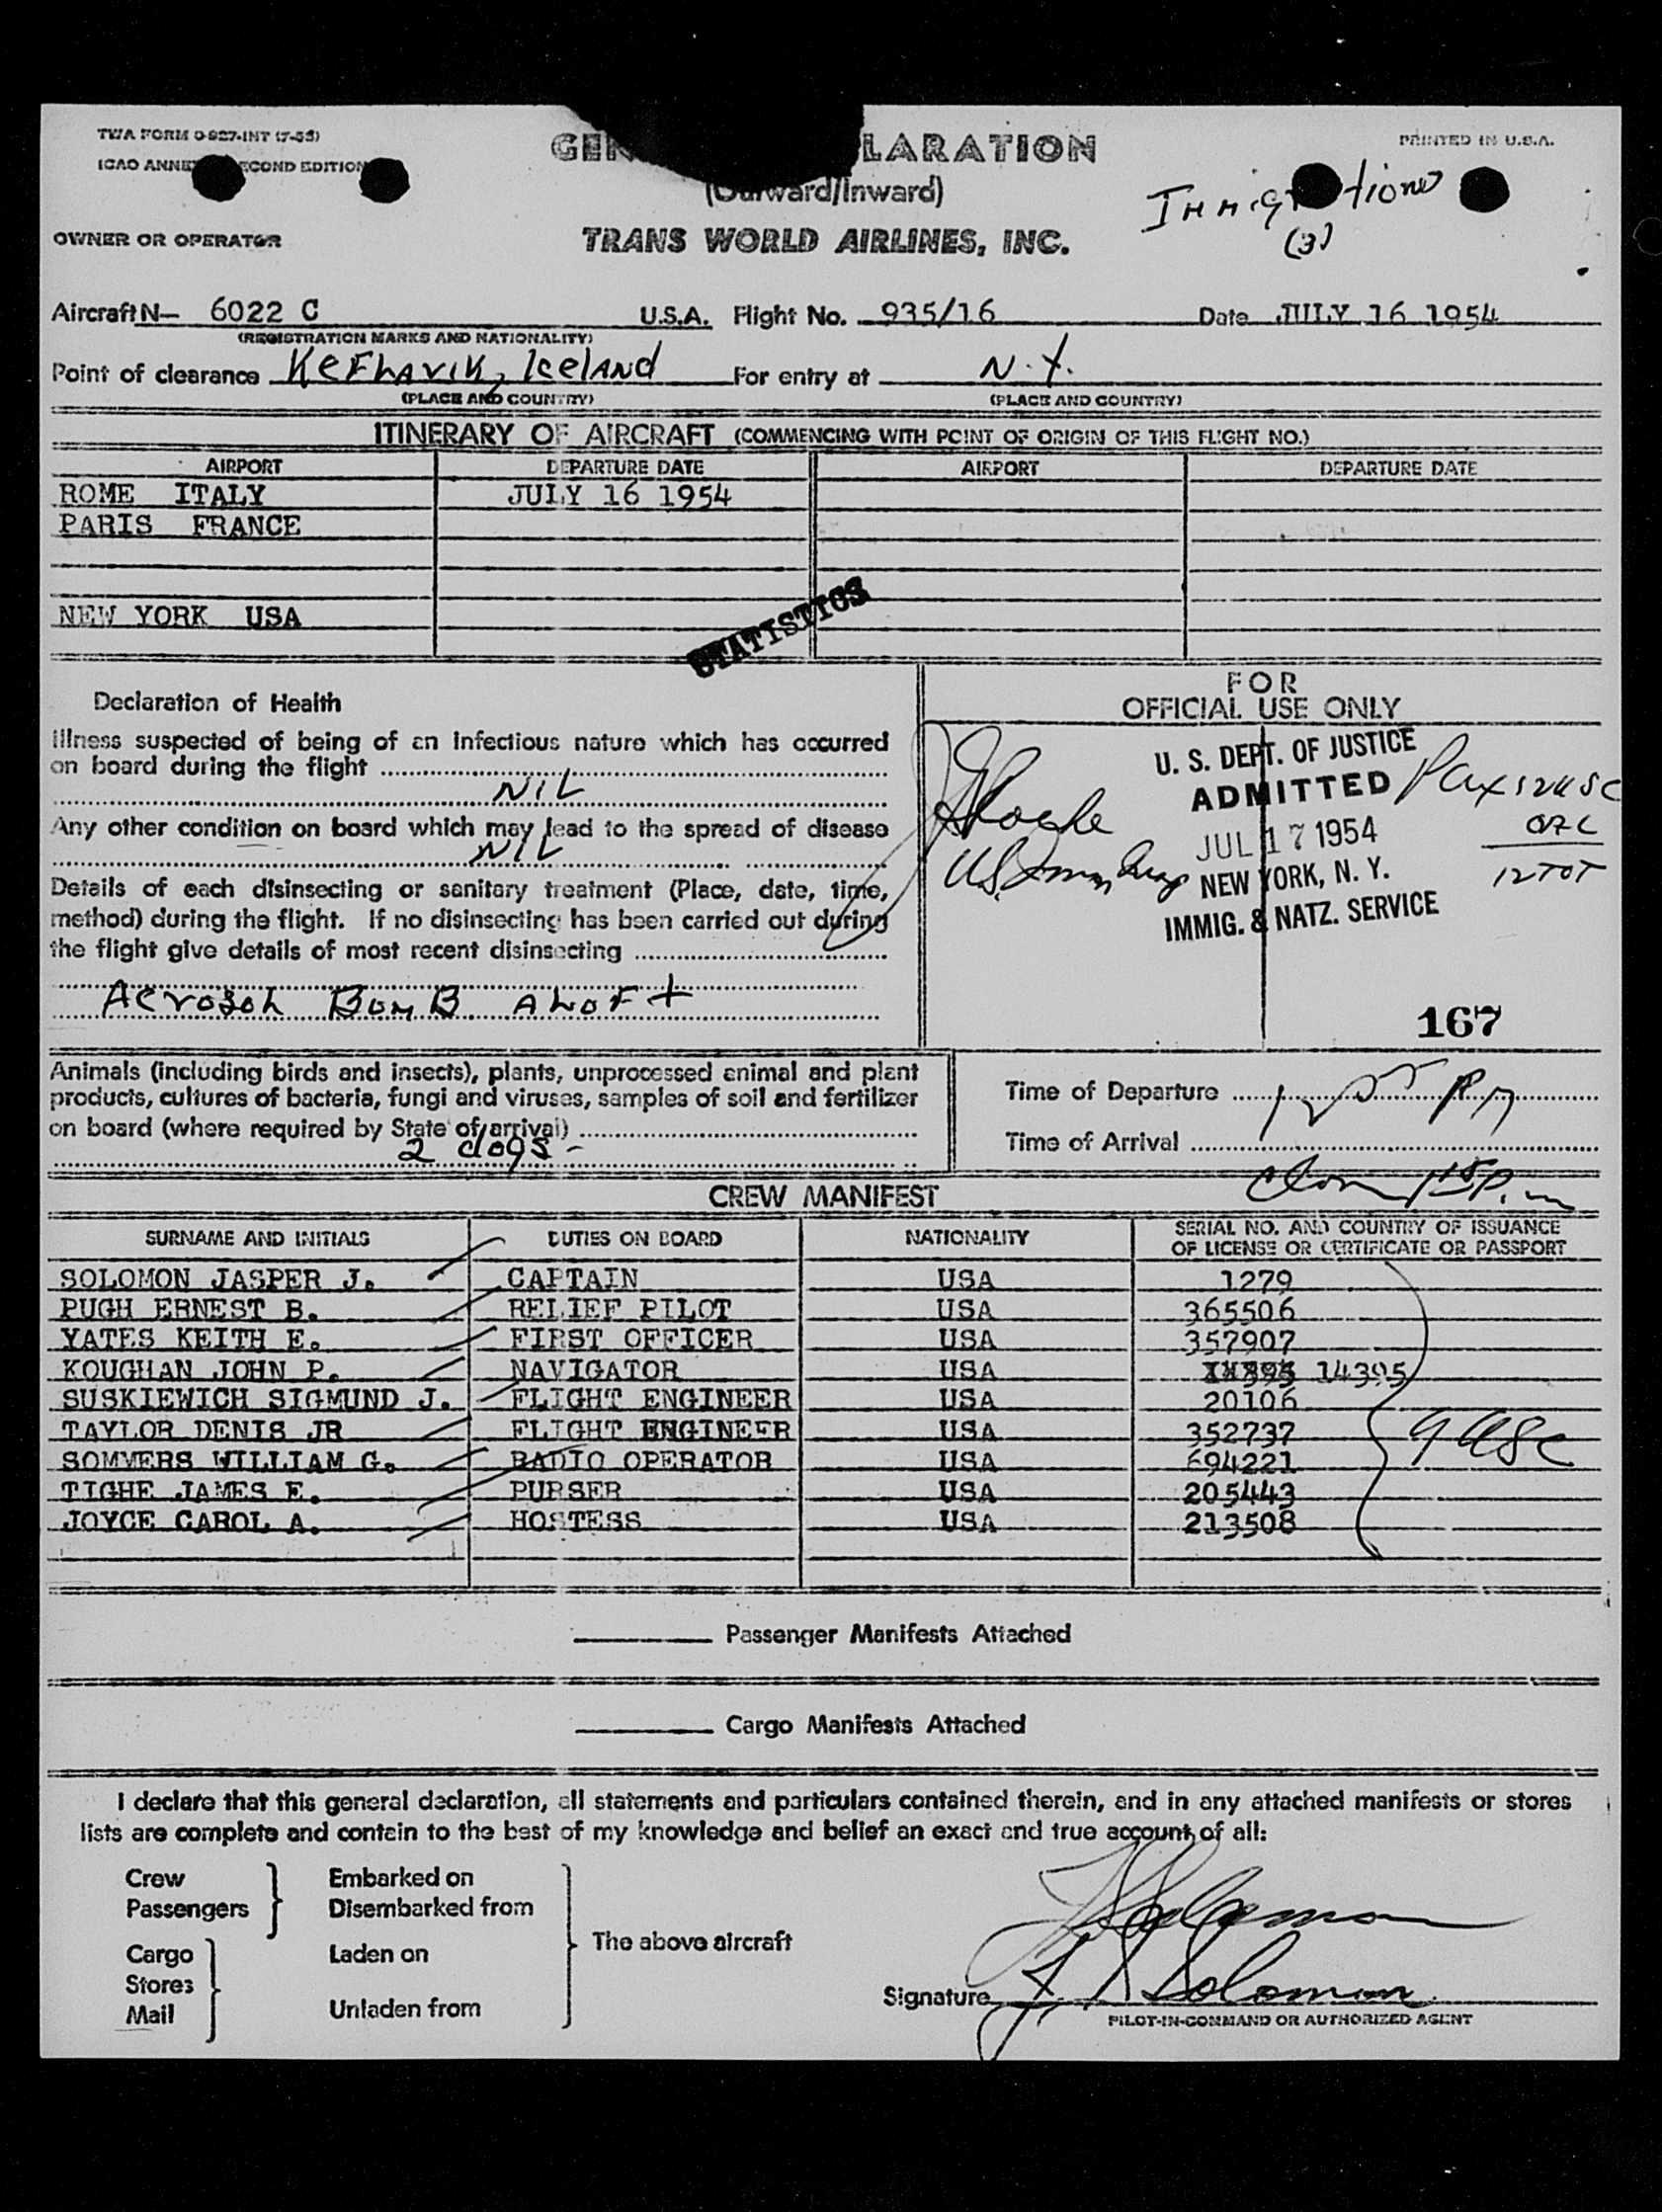 TWA FORM O-927-INT (7-53)
PRINTED IN U.S.A.
LARATION
ICAO ANNE ECOND EDITION
(Outward/Inward)
Immigrations
(3)
OWNER OR OPERATOR
TRANS WORLD AIRLINES, INC.
Aircraft N— 6022 C U.S.A. Flight No. 935/16 Date JULY 16 1954
(REGISTRATION MARKS AND NATIONALITY)
Point of clearance KEFLAVIK, ICELAND For entry at N.Y.
(PLACE AND COUNTRY) (PLACE AND COUNTRY)
ITINERARY OF AIRCRAFT (COMMENCING WITH POINT OF ORIGIN OF THIS FLIGHT NO.)
AIRPORT DEPARTURE DATE AIRPORT DEPARTURE DATE
ROME ITALY JULY 16 1954
PARIS FRANCE
NEW YORK USA
STATISTICS
Declaration of Health
Illness suspected of being of an infectious nature which has occurred
on board during the flight
NIL
Any other condition on board which may lead to the spread of disease
NIL
Details of each disinsecting or sanitary treatment (Place, date, time,
method) during the flight. If no disinsecting has been carried out during
the flight give details of most recent disinsecting
AEROSOL BOMB ALOFT
FOR
OFFICIAL USE ONLY
U. S. DEPT. OF JUSTICE
ADMITTED
JUL 17 1954
NEW YORK, N. Y.
IMMIG. & NATZ. SERVICE
12 TOT
167
Animals (including birds and insects), plants, unprocessed animal and plant
products, cultures of bacteria, fungi and viruses, samples of soil and fertilizer
on board (where required by State of arrival)
2 dogs -
Time of Departure
Time of Arrival
CREW MANIFEST
SURNAME AND INITIALS DUTIES ON BOARD NATIONALITY SERIAL NO. AND COUNTRY OF ISSUANCE
OF LICENSE OR CERTIFICATE OR PASSPORT
SOLOMON JASPER J. CAPTAIN USA 1279
PUGH ERNEST B. RELIEF PILOT USA 365506
YATES KEITH E. FIRST OFFICER USA 357907
KOUGHAN JOHN P. NAVIGATOR USA 14395
SUSKIEWICH SIGMUND J. FLIGHT ENGINEER USA 20106
TAYLOR DENIS JR FLIGHT ENGINEER USA 352737
SOMMERS WILLIAM G. RADIO OPERATOR USA 694221
9 USC
TIGHE JAMES E. PURSER USA 205443
JOYCE CAROL A. HOSTESS USA 213508
Passenger Manifests Attached
Cargo Manifests Attached
I declare that this general declaration, all statements and particulars contained therein, and in any attached manifests or stores
lists are complete and contain to the best of my knowledge and belief an exact and true account of all:
Crew Embarked on
Passengers Disembarked from
The above aircraft
Cargo Laden on
Stores
Mail Unladen from
Signature J. J. Solomon
PILOT-IN-COMMAND OR AUTHORIZED AGENT